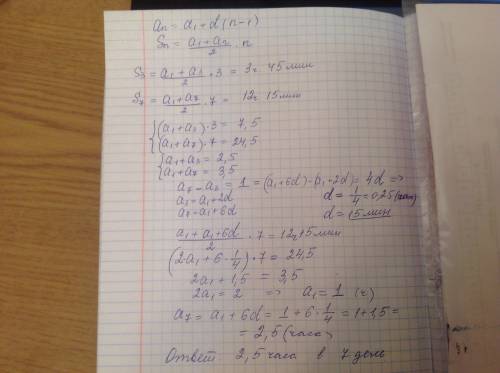 an = a1 + d(n-1)
Sn = a1 + an / 2 · n
S3 = a1 + a3 / 2 · 3 = 3ч 45 мин
S7 = a1 + a7 / 2 · 7 = 12ч 15 мин
{ (a1 + a3) · 3 = 7,5
(a1 + a7) · 7 = 24,5
{ a1 + a3 = 2,5
a1 + a7 = 3,5
a7 - a3 = 1 = (a1 + 6d) - (a1 + 2d) = 4d =>
a3 = a1 + 2d
d = 1/4 = 0,25 (час)
a7 = a1 + 6d
d = 15 мин
a1 + a1 + 6d / 2 · 7 = 12ч 15 мин
(2·a1 + 6 · 1/4) · 7 = 24,5
2a1 + 1,5 = 3,5
2a1 = 2 => a1 = 1 (ч)
a7 = a1 + 6d = 1 + 6 · 1/4 = 1 + 1,5 =
= 2,5 (часа)
Ответ 2,5 часа в 7 день